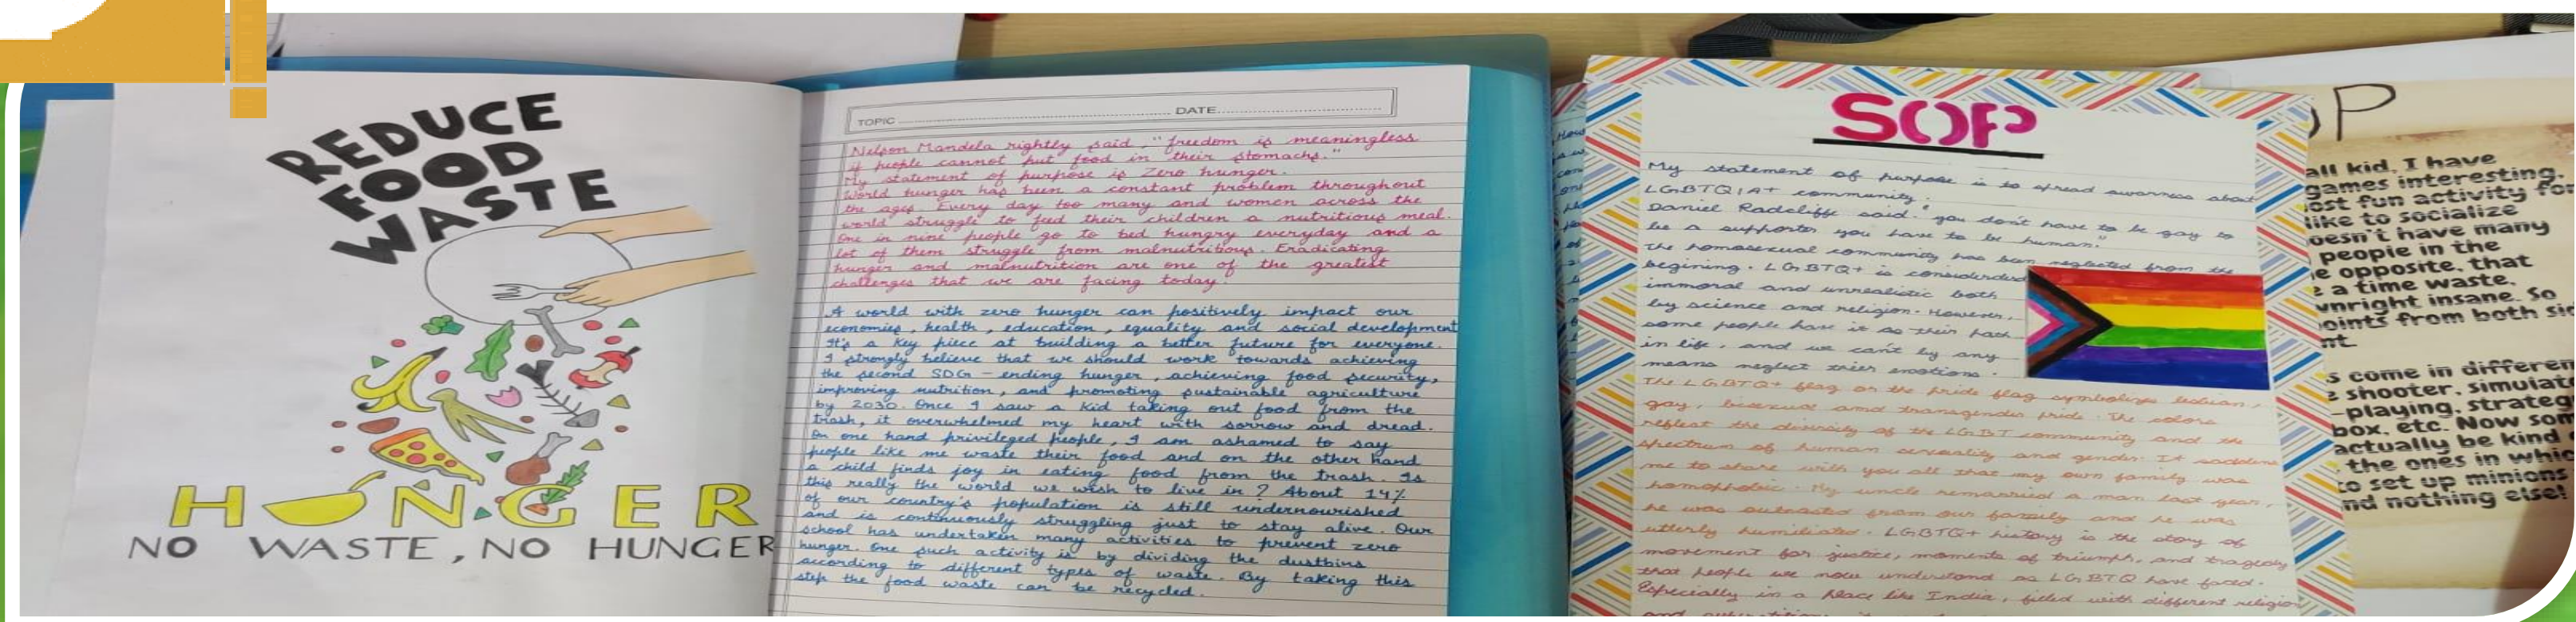 REDUCE
FOOD
WASTE
HUNGER
NO WASTE, NO HUNGER
TOPIC
DATE
Nelson Mandela rightly said, "freedom is meaningless
if people cannot put food in their stomachs."
My statement of purpose is Zero hunger.
World hunger has been a constant problem throughout
the ages. Every day too many and women across the
world struggle to feed their children a nutritious meal.
One in nine people go to bed hungry everyday and a
lot of them struggle from malnutritious. Eradicating
hunger and malnutrition are one of the greatest
challenges that we are facing today.
A world with zero hunger can positively impact our
economies, health, education, equality and social development
It's a key piece at building a better future for everyone.
I strongly believe that we should work towards achieving
the second SDG - ending hunger, achieving food security,
improving nutrition, and promoting sustainable agriculture
by 2030. Once I saw a kid taking out food from the
trash, it overwhelmed my heart with sorrow and dread.
On one hand privileged people, I am ashamed to say
people like me waste their food and on the other hand
a child finds joy in eating food from the trash. Is
this really the world we wish to live in? About 14%
of our country's population is still undernourished
and is continuously struggling just to stay alive. Our
school has undertaken many activities to prevent zero
hunger. One such activity is by dividing the dustbins
according to different types of waste. By taking this
step the food waste can be recycled.
SOP
My statement of purpose is to spread awarness about
LGBTQIA+ community.
Daniel Radcliffe said. "you don't have to be gay to
be a supporter you have to be human."
The homosexual community has been neglected from the
begining. LGBTQ+ is considerded
immoral and unrealistic both
by science and religion. However,
some people have it as their path
in life, and we can't by any
means neglect thier emotions.
The LGBTQ+ flag or the pride flag symbolizes lesbian,
gay, bisexual and transgender pride. The colors
reflect the diversity of the LGBT community and the
spectrum of human sexuality and gender. It saddens
me to share with you all that my own family was
homophobic. My uncle remarried a man last year,
he was outcasted from our family and he was
utterly humiliated. LGBTQ+ history is the story of
movement for justice, moments of triumph, and tragedy
that people we now understand as LGBTQ have faced.
Especially in a place like India, filled with different religion
P
all kid, I have
games interesting.
ost fun activity for
like to socialize
oesn't have many
people in the
e opposite, that
e a time waste,
wnright insane. So
oints from both sid
nt.
s come in differen
shooter, simulat
-playing, strateg
box, etc. Now som
actually be kind
the ones in whic
to set up minions
nd nothing else!